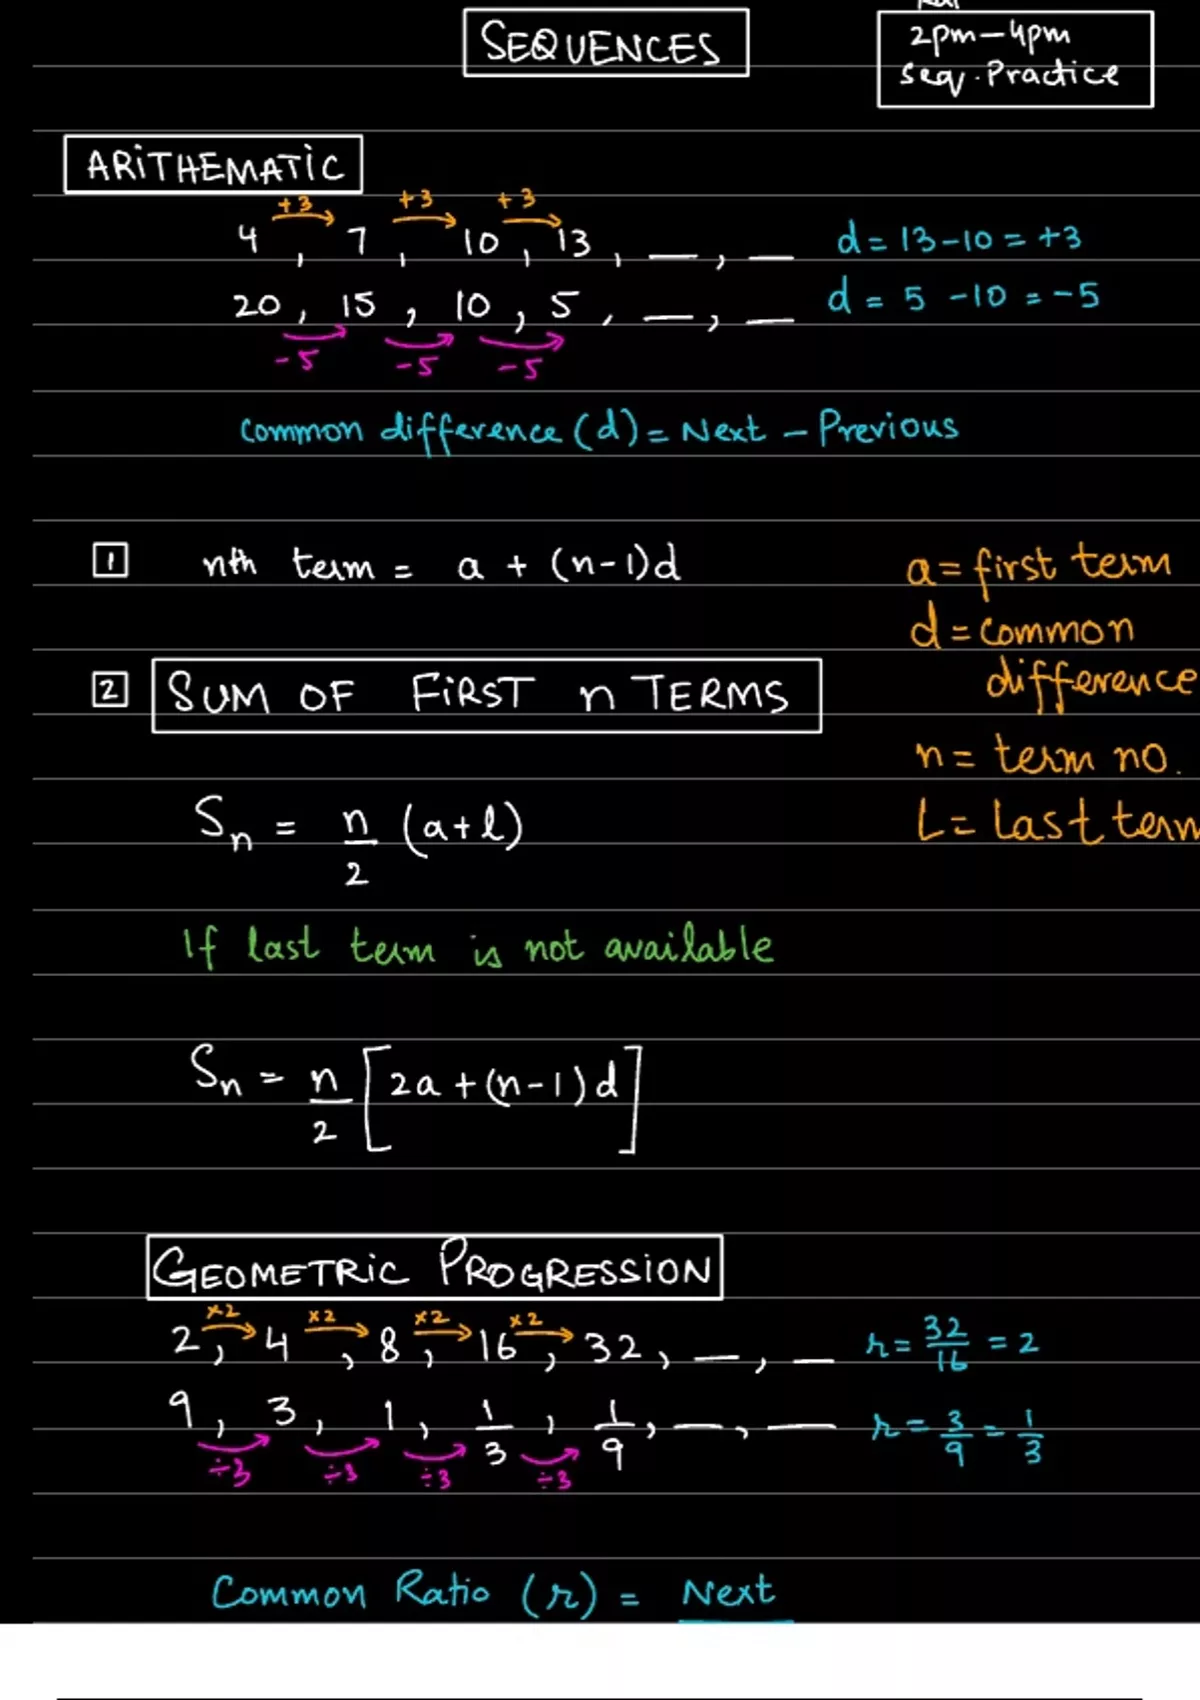 SEQUENCES
2pm-4pm
seq. Practice
ARITHEMATIC
+3 +3 +3
4, 7, 10, 13, __, __ d = 13-10 = +3
20, 15, 10, 5, __, __ d = 5 -10 = -5
-5 -5 -5
common difference (d) = Next - Previous
1 nth term = a + (n-1)d
a = first term
d = common
difference
2 SUM OF FIRST n TERMS
n = term no.
L = Last term
Sn = n/2 (a+l)
If last term is not available
Sn = n/2 [2a + (n-1)d]
GEOMETRIC PROGRESSION
×2 ×2 ×2 ×2
2, 4, 8, 16, 32, __, __ r = 32/16 = 2
9, 3, 1, 1/3, 1/9, __, __ r = 3/9 = 1/3
÷3 ÷3 ÷3 ÷3
Common Ratio (r) = Next